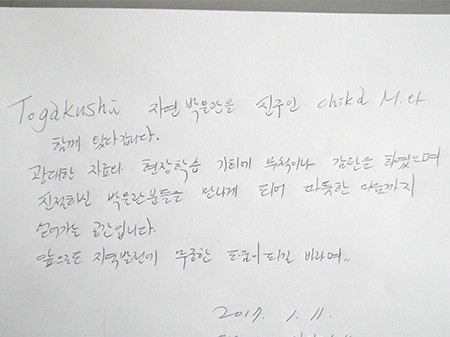 Togakushi 자연 박물관을 친구인 chika M.와
함께 왔다갑니다.
광대한 자료와 현장학습 기회에 무척이나 감탄을 하였으며
친절하신 박물관분들을 만나게 되어 따뜻한 마음까지
얻어가는 공간입니다.
앞으로도 지역발전에 무궁한 도움이 되길 바라며..
2017. 1. 11.